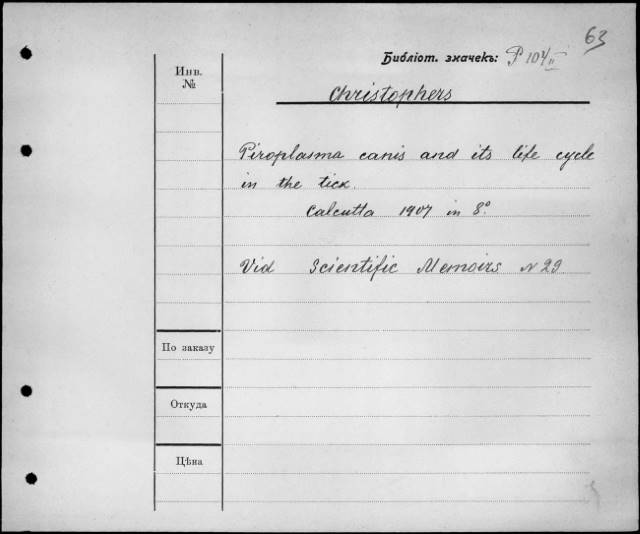 63
Библіот. значекъ: P 104 II
Инв.
№
Christophers
Piroplasma canis and its life cycle
in the tick.
Calcutta 1907 in 8°
Vid Scientific Memoirs N 29
По заказу
Откуда
Цѣна